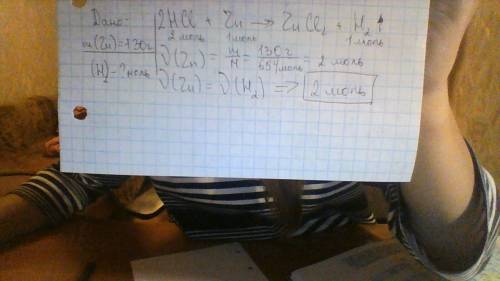 Дано:
m(Zn)=130г
(H₂)-?моль
2HCl + Zn → ZnCl₂ + H₂↑
2 моль 1моль 1 моль
ν(Zn) = m/M = 130г/65г/моль = 2 моль
ν(Zn) = ν(H₂) => 2 моль